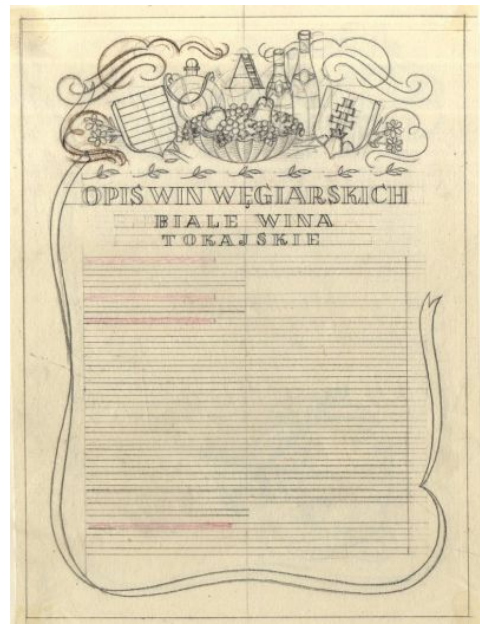 A
OPIS WIN WĘGIARSKICH
BIALE WINA
TOKAJSKIE